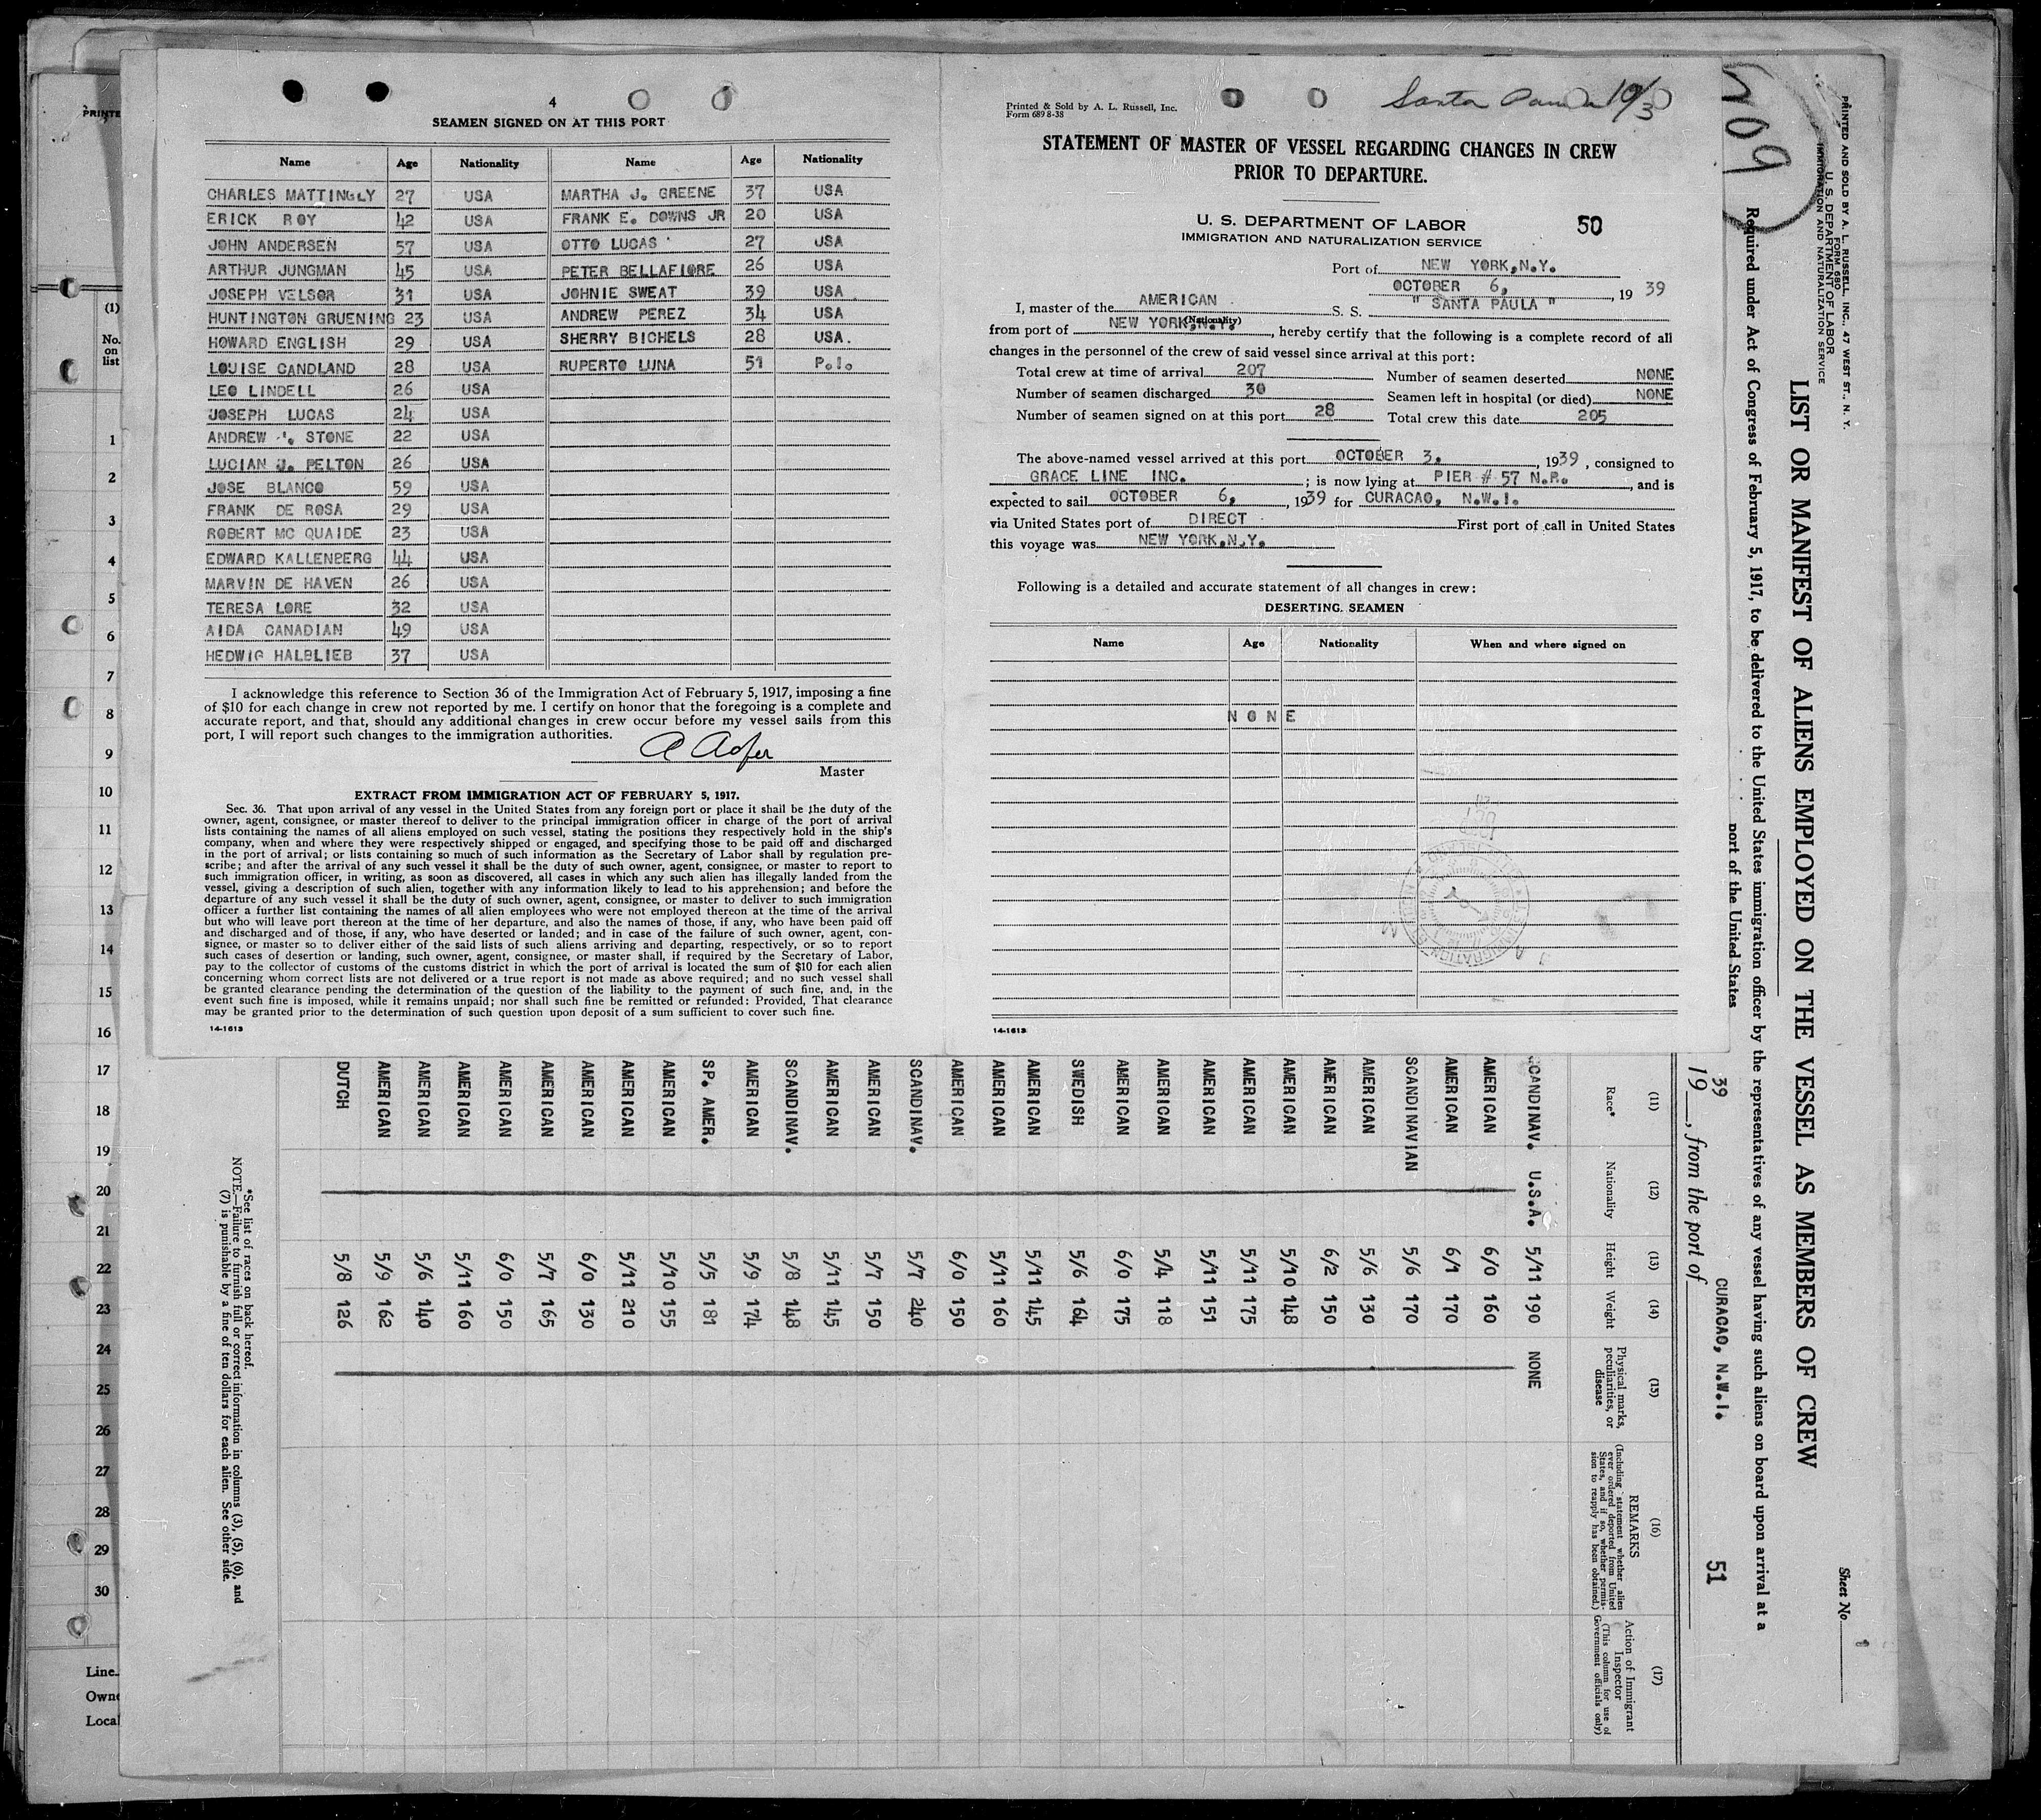 4
SEAMEN SIGNED ON AT THIS PORT
Name Age Nationality Name Age Nationality
CHARLES MATTINGLY 27 USA MARTHA J. GREENE 37 USA
ERICK ROY 42 USA FRANK E. DOWNS JR 20 USA
JOHN ANDERSEN 57 USA OTTO LUCAS 27 USA
ARTHUR JUNGMAN 45 USA PETER BELLAFIORE 26 USA
JOSEPH VELSOR 31 USA JOHNIE SWEAT 39 USA
HUNTINGTON GRUENING 23 USA ANDREW PEREZ 34 USA
HOWARD ENGLISH 29 USA SHERRY BICHELS 28 USA.
LOUISE CANDLAND 28 USA RUPERTO LUNA 51 P.I.
LEO LINDELL 26 USA
JOSEPH LUCAS 24 USA
ANDREW STONE 22 USA
LUCIAN J. PELTON 26 USA
JOSE BLANCO 59 USA
FRANK DE ROSA 29 USA
ROBERT MC QUAIDE 23 USA
EDWARD KALLENBERG 44 USA
MARVIN DE HAVEN 26 USA
TERESA LORE 32 USA
AIDA CANADIAN 49 USA
HEDWIG HALBLIEB 37 USA
I acknowledge this reference to Section 36 of the Immigration Act of February 5, 1917, imposing a fine
of $10 for each change in crew not reported by me. I certify on honor that the foregoing is a complete and
accurate report, and that, should any additional changes in crew occur before my vessel sails from this
port, I will report such changes to the immigration authorities.
Master
EXTRACT FROM IMMIGRATION ACT OF FEBRUARY 5, 1917.
Sec. 36. That upon arrival of any vessel in the United States from any foreign port or place it shall be the duty of the
owner, agent, consignee, or master thereof to deliver to the principal immigration officer in charge of the port of arrival
lists containing the names of all aliens employed on such vessel, stating the positions they respectively hold in the ship's
company, when and where they were respectively shipped or engaged, and specifying those to be paid off and discharged
in the port of arrival; or lists containing so much of such information as the Secretary of Labor shall by regulation pre-
scribe; and after the arrival of any such vessel it shall be the duty of such owner, agent, consignee, or master to report to
such immigration officer, in writing, as soon as discovered, all cases in which any such alien has illegally landed from the
vessel, giving a description of such alien, together with any information likely to lead to his apprehension; and before the
departure of any such vessel it shall be the duty of such owner, agent, consignee, or master to deliver to such immigration
officer a further list containing the names of all alien employees who were not employed thereon at the time of the arrival
but who will leave port thereon at the time of her departure, and also the names of those, if any, who have been paid off
and discharged and of those, if any, who have deserted or landed; and in case of the failure of such owner, agent, con-
signee, or master so to deliver either of the said lists of such aliens arriving and departing, respectively, or so to report
such cases of desertion or landing, such owner, agent, consignee, or master shall, if required by the Secretary of Labor,
pay to the collector of customs of the customs district in which the port of arrival is located the sum of $10 for each alien
concerning whom correct lists are not delivered or a true report is not made as above required; and no such vessel shall
be granted clearance pending the determination of the question of the liability to the payment of such fine, and, in the
event such fine is imposed, while it remains unpaid; nor shall such fine be remitted or refunded: Provided, That clearance
may be granted prior to the determination of such question upon deposit of a sum sufficient to cover such fine.
14-1613
Printed & Sold by A. L. Russell, Inc.
Form 689 8-38
Santa Paula 10/3
STATEMENT OF MASTER OF VESSEL REGARDING CHANGES IN CREW
PRIOR TO DEPARTURE.
U. S. DEPARTMENT OF LABOR 50
IMMIGRATION AND NATURALIZATION SERVICE
Port of NEW YORK,N.Y.
OCTOBER 6, , 19 39
I, master of the AMERICAN S. S. " SANTA PAULA "
(Nationality)
from port of NEW YORK,N.Y. , hereby certify that the following is a complete record of all
changes in the personnel of the crew of said vessel since arrival at this port:
Total crew at time of arrival 207 Number of seamen deserted NONE
Number of seamen discharged 30 Seamen left in hospital (or died) NONE
Number of seamen signed on at this port 28 Total crew this date 205
The above-named vessel arrived at this port OCTOBER 3, , 1939 , consigned to
GRACE LINE INC. ; is now lying at PIER # 57 N.R. , and is
expected to sail OCTOBER 6, , 1939 for CURACAO, N.W.I.
via United States port of DIRECT First port of call in United States
this voyage was NEW YORK,N.Y.
Following is a detailed and accurate statement of all changes in crew:
DESERTING SEAMEN
Name Age Nationality When and where signed on
NONE
14-1613
209
PRINTED AND SOLD BY A. L. RUSSELL, INC., 47 WEST ST., N. Y.
FORM 680
U. S. DEPARTMENT OF LABOR
IMMIGRATION AND NATURALIZATION SERVICE
Sheet No.
LIST OR MANIFEST OF ALIENS EMPLOYED ON THE VESSEL AS MEMBERS OF CREW
Required under Act of Congress of February 5, 1917, to be delivered to the United States immigration officer by the representatives of any vessel having such aliens on board upon arrival at a
port of the United States
39
19 , from the port of CURACAO, N.W.I. 51
(11) (12) (13) (14) (15) (16) (17)
Race* Nationality Height Weight Physical marks, peculiarities, or disease
REMARKS
(Including statement whether alien ever ordered deported from United States, and if so, whether permission to reapply has been obtained.)
Action of Immigrant Inspector
(This column for use of Government officials only)
SCANDINAV. U.S.A. 5/11 190 NONE
AMERICAN 6/0 160
AMERICAN 6/1 170
SCANDINAVIAN 5/6 170
AMERICAN 5/6 130
AMERICAN 6/2 150
AMERICAN 5/10 148
AMERICAN 5/11 175
AMERICAN 5/11 151
AMERICAN 5/4 118
AMERICAN 6/0 175
SWEDISH 5/6 164
AMERICAN 5/11 145
AMERICAN 5/11 160
AMERICAN 6/0 150
SCANDINAV. 5/7 240
AMERICAN 5/7 150
AMERICAN 5/11 145
SCANDINAV. 5/8 148
AMERICAN 5/9 174
SP. AMER. 5/5 181
AMERICAN 5/10 155
AMERICAN 5/11 210
AMERICAN 6/0 130
AMERICAN 5/7 165
AMERICAN 6/0 150
AMERICAN 5/11 160
AMERICAN 5/6 140
AMERICAN 5/9 162
DUTCH 5/8 126
*See list of races on back hereof.
NOTE.—Failure to furnish full or correct information in columns (3), (5), (6), and
(7) is punishable by a fine of ten dollars for each alien. See other side.
PRINTE
(1)
No.
on
list
1
2
3
4
5
6
7
8
9
10
11
12
13
14
15
16
17
18
19
20
21
22
23
24
25
26
27
28
29
30
Line
Owne
Local